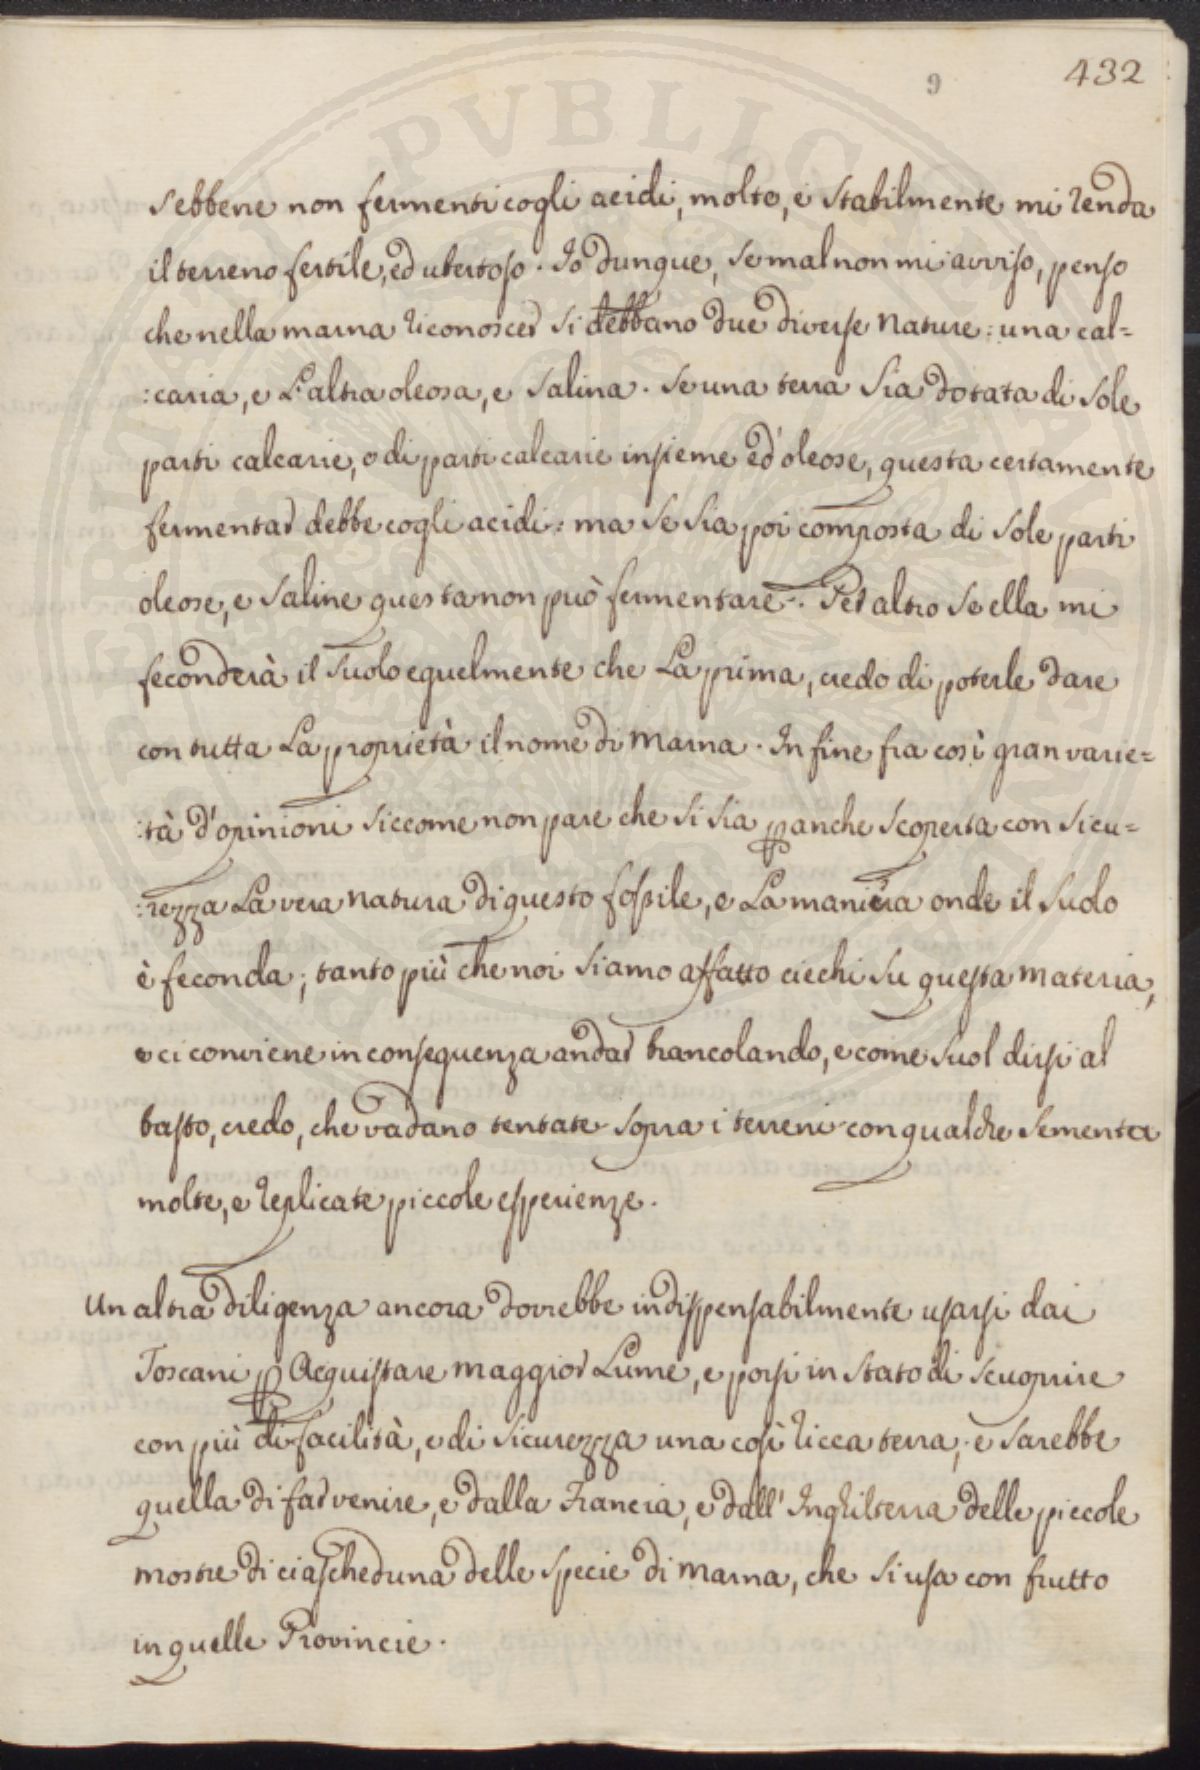 9 432
sebbene non fermenti cogli acidi, molto, e stabilmente mi renda
il terreno fertile, ed ubertoso. Io dunque, se mal non mi avviso, penso
che nella marna riconoscer si debbano due diverse nature: una cal=
:caria, e L'altra oleosa, e salina. Se una terra sia dotata di sole
parti calcarie, o di parti calcarie insieme ed oleose, questa certamente
fermentar debbe cogli acidi: ma se sia poi composta di sole parti
oleose, e saline questa non può fermentare. Per altro se ella mi
feconderà il suolo equelmente che La prima, credo di poterle dare
con tutta La proprietà il nome di marna. In fine fra così gran varie=
:tà d'opinioni siccome non pare che si sia p anche scoperta con sicu=
:rezza La vera natura di questo fossile, e La maniera onde il suolo
è feconda; tanto più che noi siamo affatto ciechi su questa materia,
e ci conviene in conseguenza andar brancolando, e come suol dirsi al
tasto, credo, che vadano tentate sopra i terreni con qualche sementa
molte, e replicate piccole esperienze.
Un altra diligenza ancora dovrebbe indispensabilmente usarsi dai
Toscani p Acquistare maggior Lume, e porsi in stato di scuoprire
con più di facilità, e di sicurezza una così ricca terra, e sarebbe
quella di far venire, e dalla Francia, e dall' Inghilterra delle piccole
mostre di ciascheduna delle specie di marna, che si usa con frutto
in quelle Provincie.